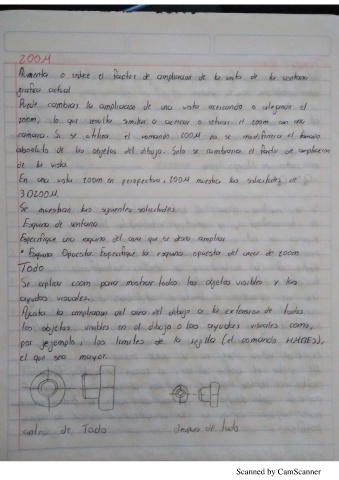 ZOOM
Aumenta o reduce el factor de ampliacion de la vista de la ventana
grafica actual
Puede cambiar la ampliacion de una vista acercando o alejando el
zoom, lo que resulta similar a acercar o retirar el zoom con una
camara. Si se utiliza el comando ZOOM no se modificara el tamaño
absoluto de los objetos del dibujo. Solo se cambiara el factor de ampliacion
de la vista.
En una vista zoom en perspectiva, ZOOM muestra las solicitudes de
3DZOOM.
Se muestran las siguientes solicitudes
Esquina de ventana
Especifique una esquina del area que se desea ampliar
* Esquina Opuesta: Especifique la esquina opuesta del area de zoom
Todo
Se aplica zoom para mostrar todos los objetos visibles y las
ayudas visuales.
Ajusta la ampliacion del area del dibujo a la extension de todos
los objetos visibles en el dibujo o las ayudas visuales como,
por jejemplo, los limites de la rejilla (el comando LIMITES),
el que sea mayor.
antes de Todo
despues de todo
Scanned by CamScanner